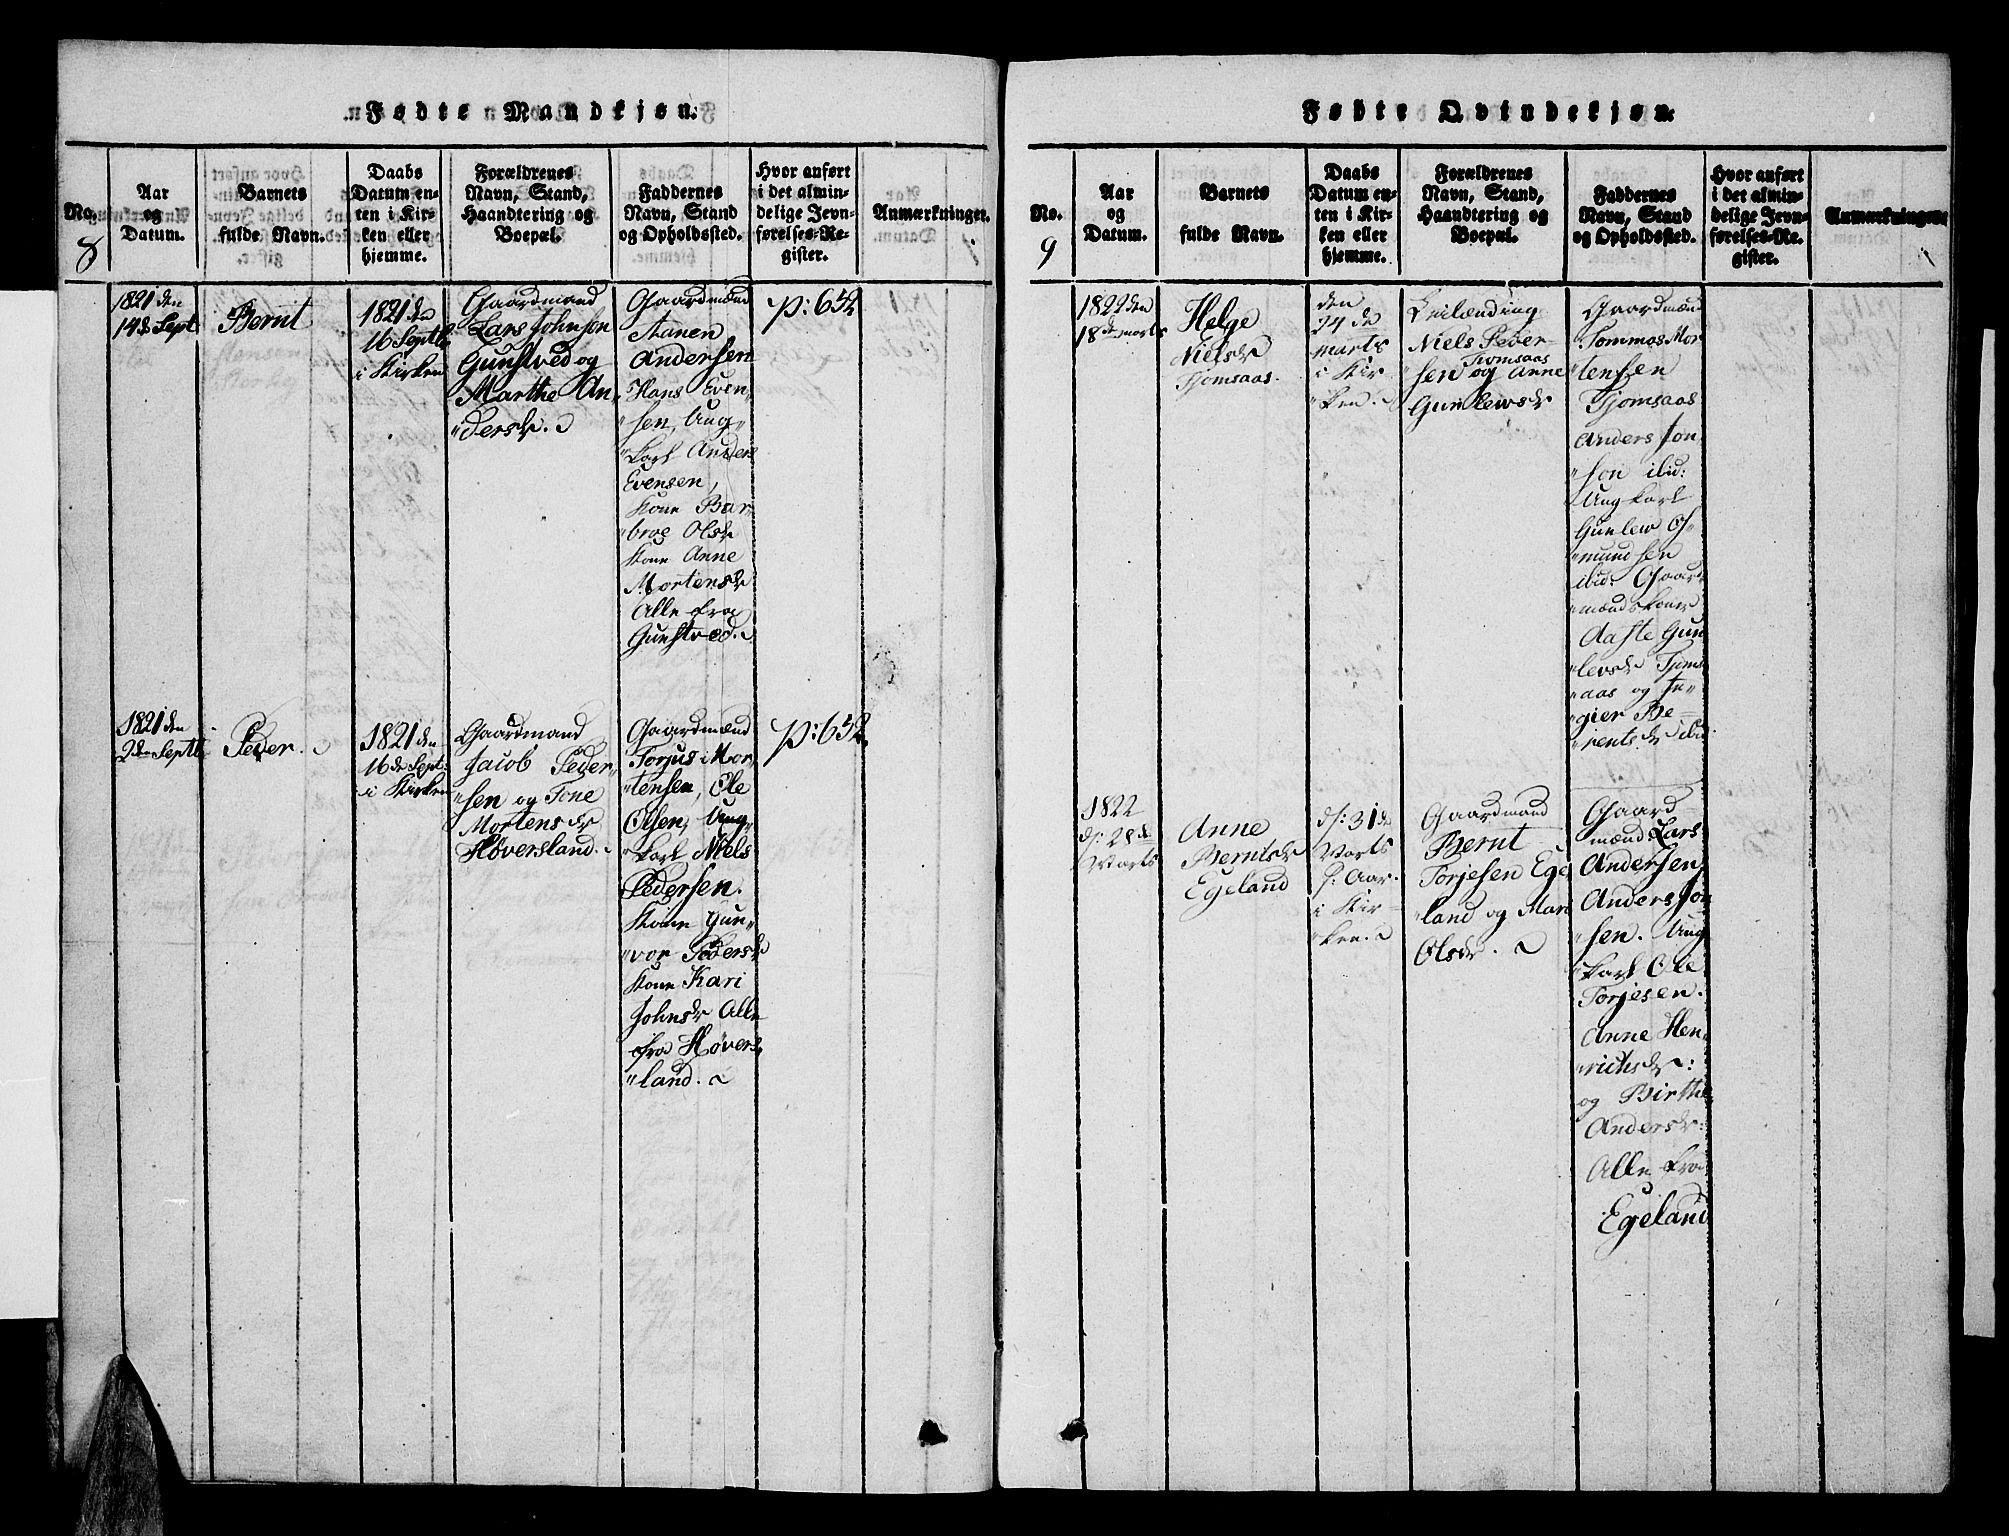 Fødte Mandkjøn.
No.
8
Aar
og
Datum.
Barnets
fulde Navn.
Daabs
Datum en-
ten i Kir-
ken eller
hjemme.
Forældrenes
Navn, Stand,
Haandtering og
Boepæl.
Faddernes
Navn, Stand
og Opholdssted.
Hvor anført
i det almin-
delige Jevn-
førelses-Re-
gister.
Anmærkninger.
1821 den
14de Sept
Bernt
1821 den
16 Septb
i Kirken
Gaardmand
Lars Johnsen
Gunstved og
Marthe An„
„dersdr.
Gaardmænd
Aanen
Andersen
Hans Even„
„sen, Ung„
„karl Anders
Evensen,
Kone Bar
„broe Olsdr
Kone Anne
Mortensdr
Alle fra
Gunstved.
p: 652
1821 den
2den Septb
Peder.
1821 den
16de Sept:
i Kirken
Gaardmand
Jacob Peder„
„sen og Tone
Mortensdr
Høversland.
Gaardmænd
Torjus Mor„
„tensen, Ole
Olsen, Ung„
„karl Niels
Pedersen.
Kone Gun„
„vor Pedersdr
Kone Kari
Johnsdr Alle
fra Høvers„
„land.
p: 652
Fødte Qvindekjøn.
No.
9
Aar
og
Datum.
Barnets
fulde Navn.
Daabs
Datum en-
ten i Kir-
ken eller
hjemme.
Forældrenes
Navn, Stand,
Haandtering og
Boepæl.
Faddernes
Navn, Stand
og Opholdssted.
Hvor anført
i det almin-
delige Jevn-
førelses-Re-
gister.
Anmærkninger
1822 den
18de Marts
Helge
Nielsdr
Tjomsaas.
den
24de
Marts
i Kir
„ken.
Leilænding
Niels Peder-
Tjomsaas
„sen og Anne
Gunlewsdr
Gaardmænd
Tommas Mor
„tensen
Tjomsaas
Anders Jon
„sen ibid:
Ungkarl
Gunlew A„
„mundsen
ibid: Gaard
„mandskone
Aaste Gun
„levsdr Tjoms
„aas og In„
„gier Be-
„rentsdr ibid.
1822
d: 28de
Marts
Anne
Berntsdr
Egeland
d: 31de
Marts
s: Aar.
i Kir-
„ken.
Gaardmand
Bernt
Torjesen Ege
„land og Mari
Olsdr.
Gaard
mænd Lars
Andersen
Anders Jon
„sen. Ung
„karl Ole
Torjesen.
Anne Hen
„richsdr:
og Birthe
Andersdr:
Alle fra
Egeland